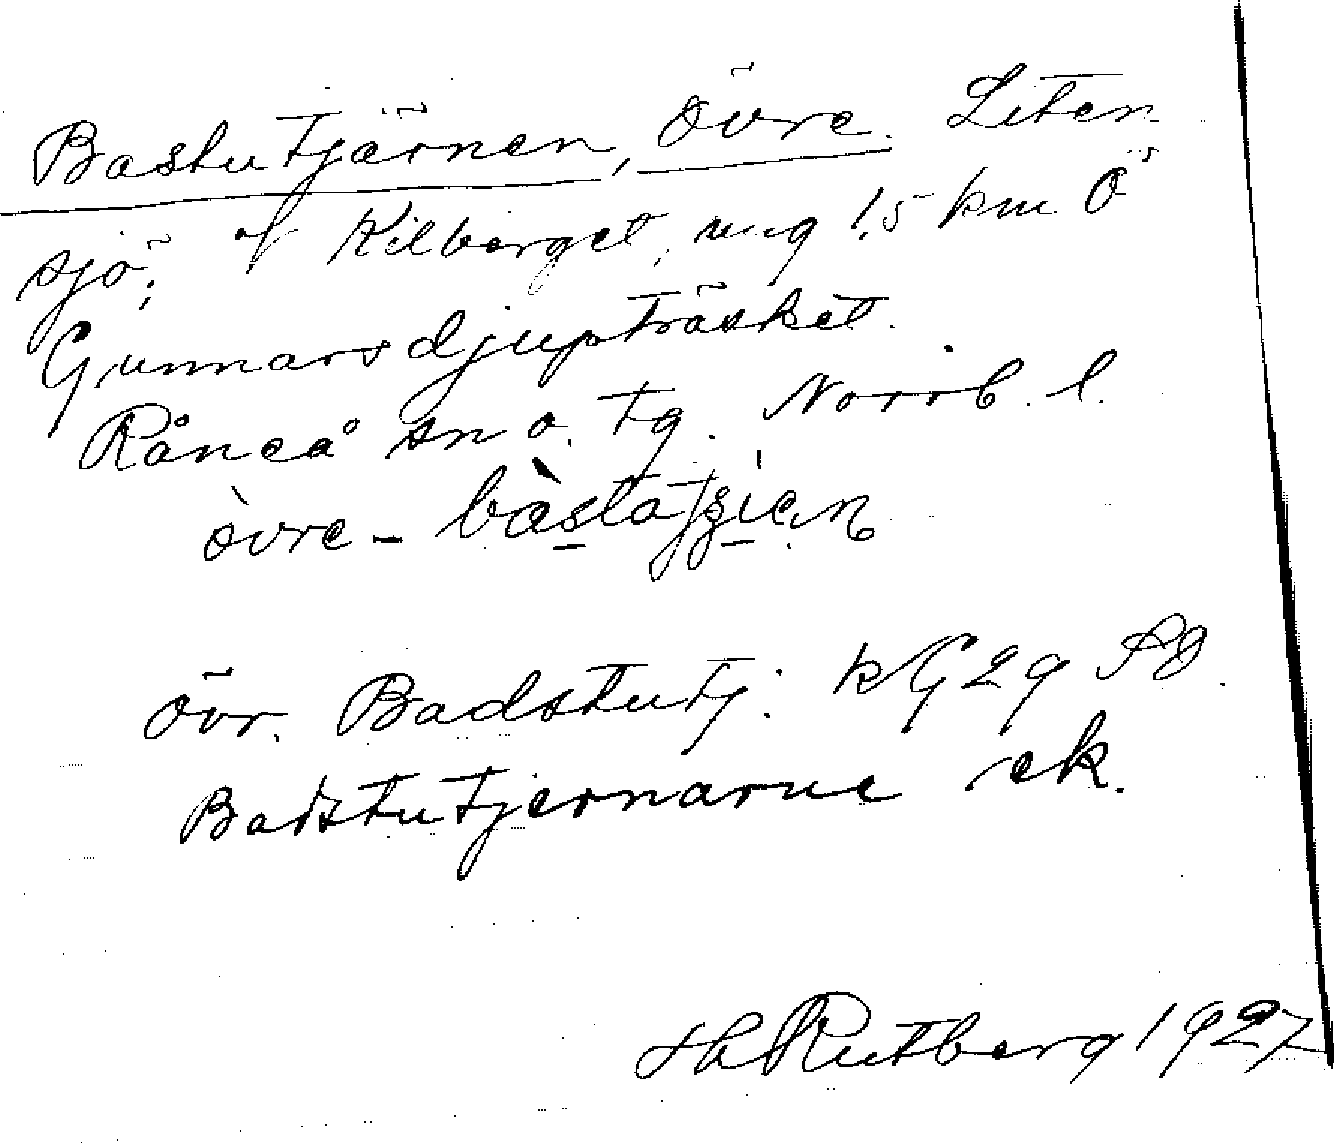 Bastutjärnen, övre. Liten
sjö; Kilberget, ung 1,5 km Ö
Gunnarsdjupträsket.
Råneå sn o. tg. Norrb. l.
òvre-
övr. Badstutj. kG29 SO.
Badstutjernarne ek.
Hh Rutberg 1927